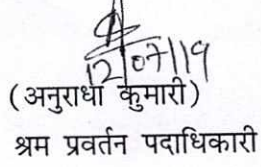 12/07/19
(अनुराधा कुमारी)
श्रम प्रवर्तन पदाधिकारी